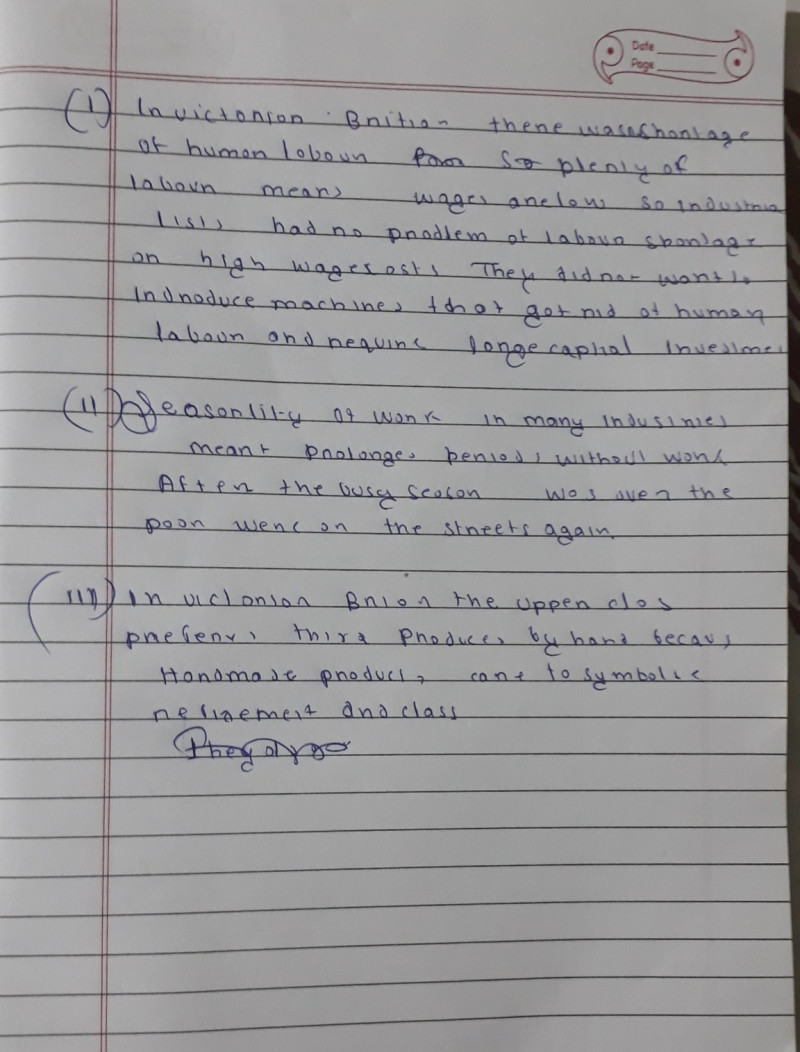 Date
Page
(I) In victorian Britian there was a shortage
of human labour so plenty of
labour means wages are low so industria
lists had no problem of labour shortage
or high wage costs They did not want to
indroduce machines that got rid of human
labour and require large capital investmen
(II) Seasonlity of work in many industries
meant prolonges periods without work
After the busy season was over the
poor were on the streets again.
(III) In victorian Briion the upper clas
preferrs thire Produces by hand becaus
Handmade products cant to symbolize
refinement and class